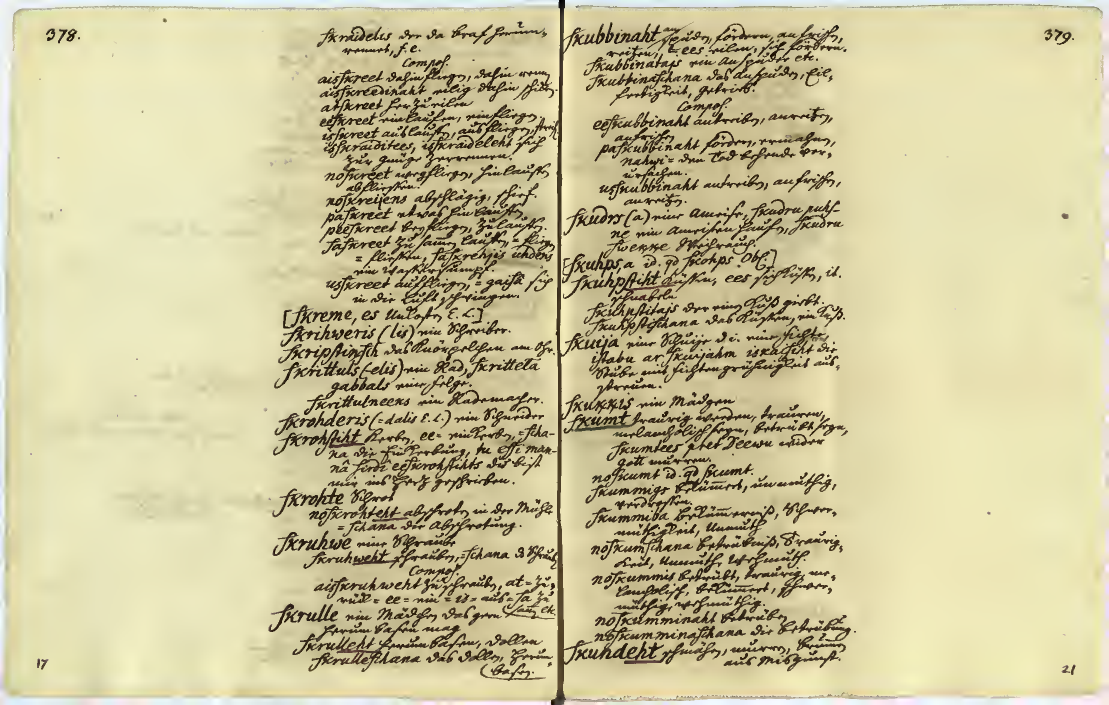 378.
skraidelis der da brav herum,
rennet, f. e.
Compos.
aisskreet dahinfliegen, dahin renn
aisskreedinaht eilig dahin
atskreet herzu eilen
eeskreet einlaufen, einfliegen
isskreet auslaufen, ausfliegen,
isskraiditees, isskraideleht sich
zur gnüge zerrennen.
noskreet wegfliegen, hinlaufen
abfliessen.
noskreijens abschlägig, schief.
paskreet etwas hinlaufen,
peeskreet befliegen, zulaufen.
saskreet zusamen laufen, = fliegen
= fliessen, saskrehjis uhdens
ein Wassersumpf.
usskreet auffliegen, = gaisâ sich
in die Luft schwingen.
[skreme, es E. L.]
skrihweris (lis) ein Schreiber.
skripstinsch das Knörpelchen am Ohr.
skrittuls (-elis) ein Rad, skritteta
gabbals eine Felge.
skrittulneeks ein Rademacher.
skrohderis (=dalis E. L.) ein Schneider
skrohstiht kerben, ee= einkerben, =scha-
na die Einkerbung, tu essi man-
nâ sirdi eeskrohstihts du bist
mir ins Herz geschrieben.
skrohte Schrot
noskrohteht abschroten in der Mühle
= schana die Abschrotung.
skruhwe eine Schraube
skruhweht schrauben, =schana d. Schraub
Compos.
aisskruhweht zuschrauben, at= zu-
rück= ee= ein= is= aus= sa zu
sam etc.
skrulle ein Mädchen das gern
herum basen mag
skrulleht herum basen, dollen
skrulleschana das dollen, herum
basen.
17
379.
skubbinaht an spuden, fördern, anfrischen,
reitzen, =tees eilen, sich fördern.
skubbinatajs ein Anspuder etc.
skubbinaschana das anspuden, Eil-
fertigkeit, getrieb.
Compos.
eeskubbinaht antreiben, anreitzen,
anfrischen
paskubbinaht fördern, ermahnen,
nahwi= den Tod ver-
ursachen.
usskubbinaht antreiben, anfrischen,
anreitzen.
skudrs (a) eine Ameise, skudru puhs-
ne ein Ameisen hauffen, skudru
swekke Weihrauch.
[skuhps, a id. qd skohps Obs.]
skuhpstiht küssen, ees sich küssen, it.
schnabeln
skuhpstitajs der einen Kuß giebt.
skuhpstischana das Küssen, ein Kuß.
skuija eine Schuije d. i. eine Fichte,
istabu ar skuijahm iskaisiht die
Stube mit Fichtengrühnigkeit aus-
streuen.
skukkis ein Mädgen
skumt traurig werden, trauren,
melancholisch seyn, betrübt seyn,
skumtees pret Deewu wider
Gott murren.
noskumt id. qd skumt.
skummigs bekümmert, unmuthig,
verdrossen
skummiba bekümmerniß, Schwer-
müthigkeit, Unmuth
noskumschana betrübniß, Traurig-
keit, Unmuth, Wehmuth.
noskummis betrübt, traurig, me-
lancholisch, bekümmert, schwer-
müthig, wehmüthig.
noskumminaht betrüben
noskumminaschana die betrübung.
skundeht schmähen, murren, brumm
aus Misgunst.
21